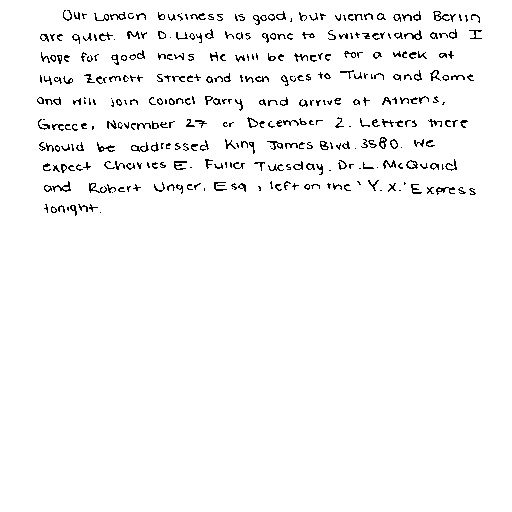 Our London business is good, but vienna and Berlin
are quiet. Mr D. Lloyd has gone to Switzerland and I
hope for good news He will be there for a week at
1496 Zermott Street and then goes to Turin and Rome
and will join Colonel Parry and arrive at Athens,
Greece, November 27 or December 2. Letters there
should be addressed King James Blvd. 3580. We
expect Charles E. Fuller Tuesday. Dr. L. McQuaid
and Robert Unger, Esq., left on the 'Y.X.' Express
tonight.